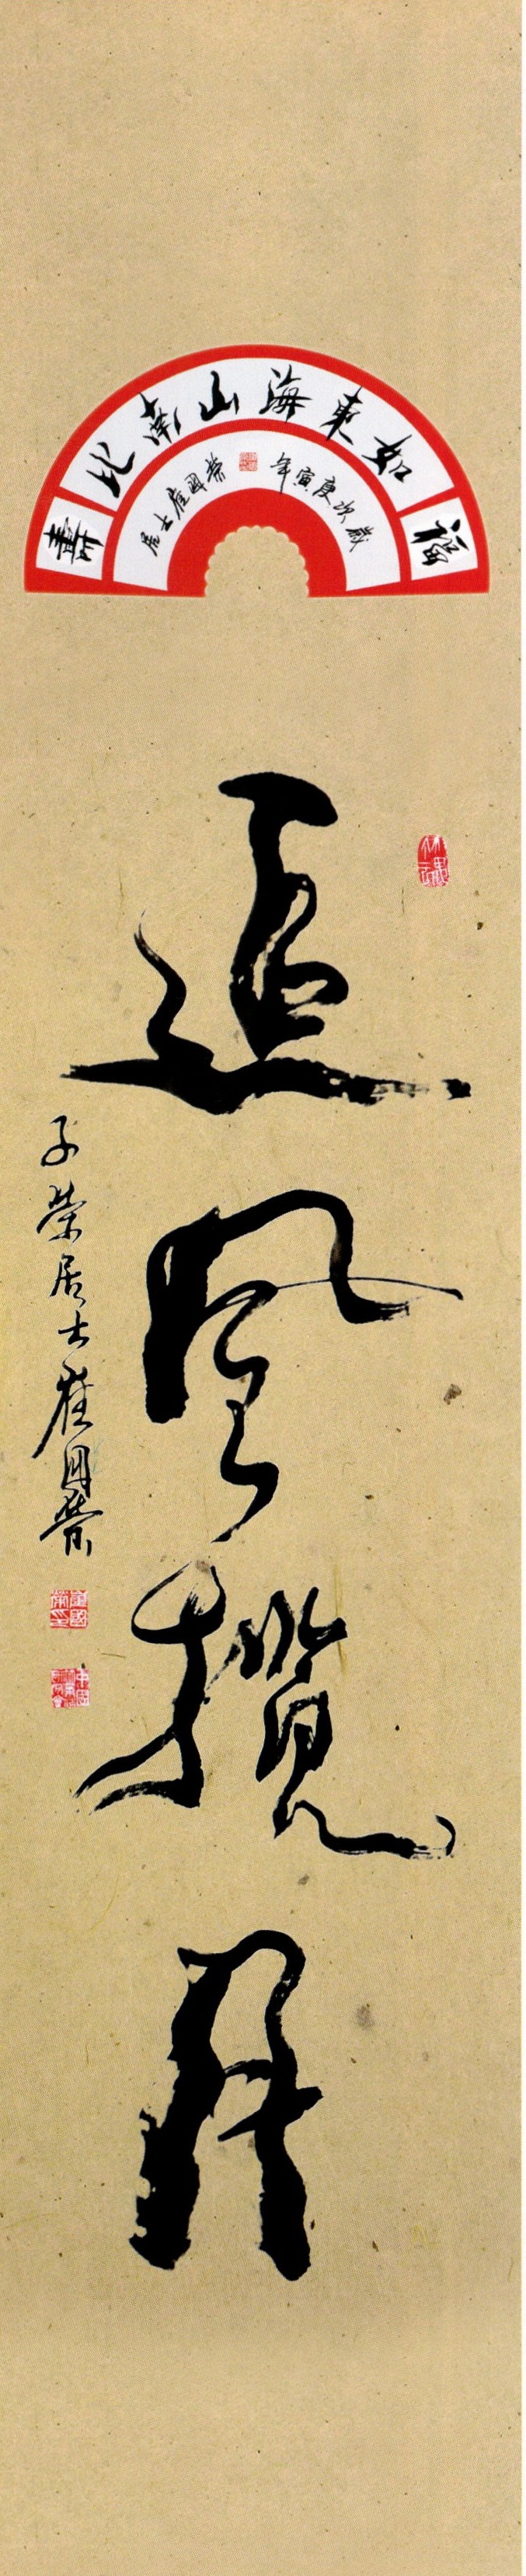 福如東海
壽比南山
歲次庚寅年
居士崔國榮
追风揽月
子榮居士崔国榮